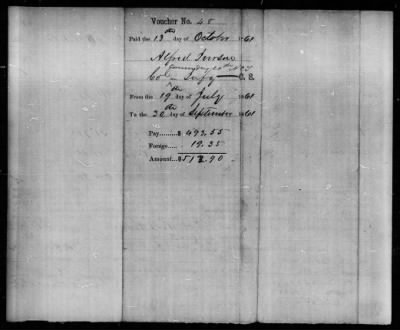 Voucher No. 45
Paid the 13th day of October 1861
Alfred Iverson
Commdg 20th N.C.T
Col Infy C. S.
From the 19th day of July 1861
To the 20th day of September 1861
Pay.....$ 493.55
Forage..... 19.35
Amount...$512.90